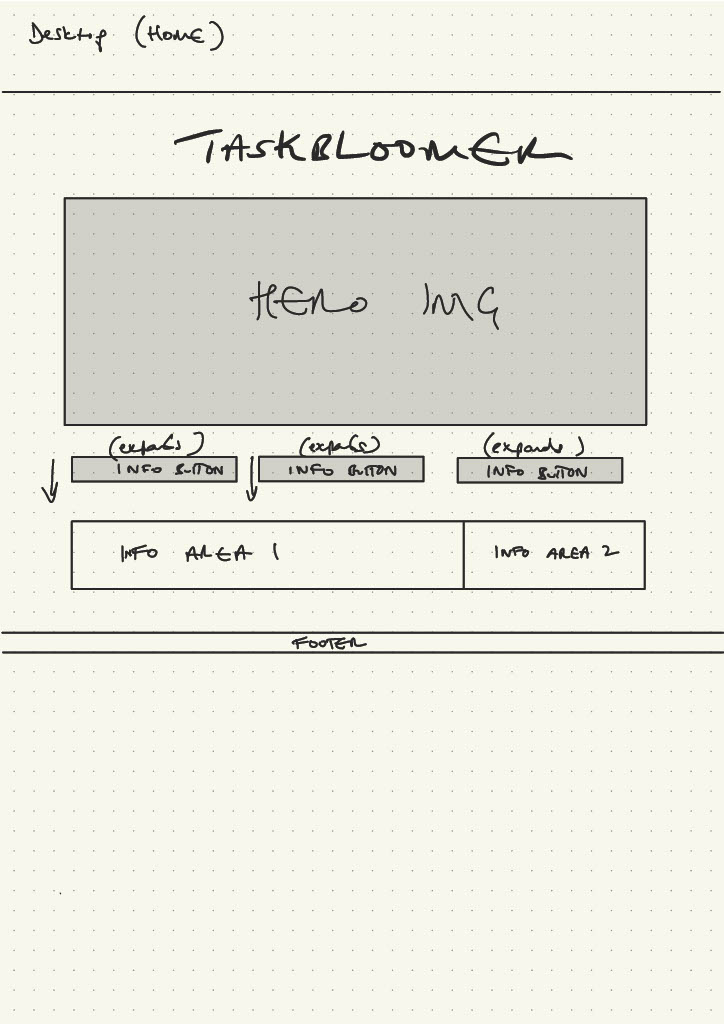 Desktop (Home)
TASKBLOOMER
HERO IMG
(expands) (expands) (expands)
INFO BUTTON INFO BUTTON INFO BUTTON
INFO AREA 1 INFO AREA 2
FOOTER